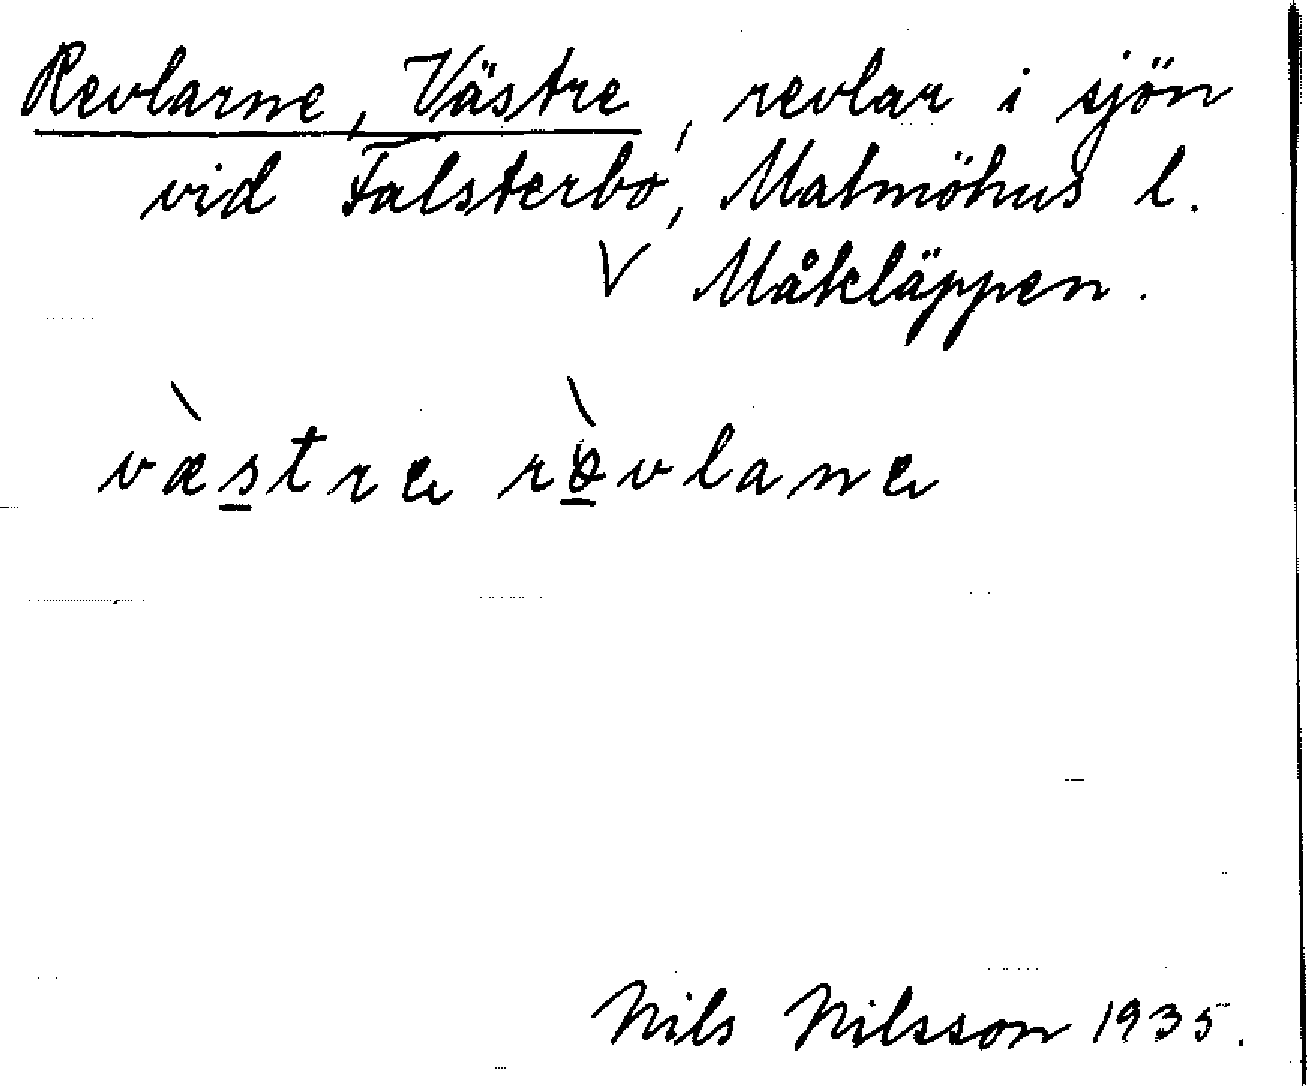 Revlarne, Västre, revlar i sjön
vid Falsterbo, Malmöhus l.
V Måkläppen.
væ̀stre rø̀vlane
Nils Nilsson 1935.